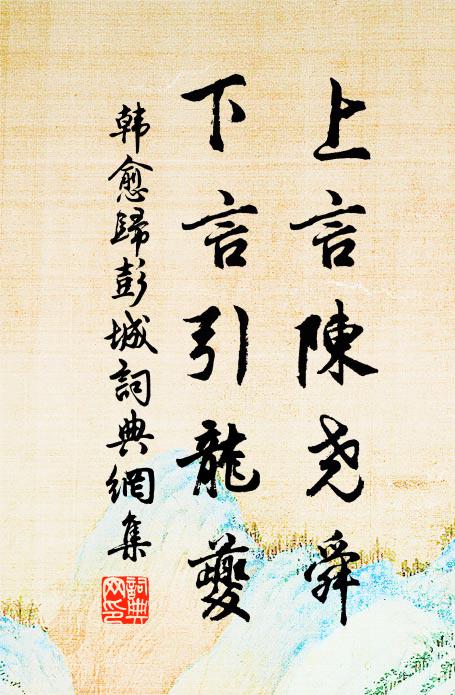 上言陳尧舜
下言引龍夔
韓愈歸彭城詞典網集
詞典网印